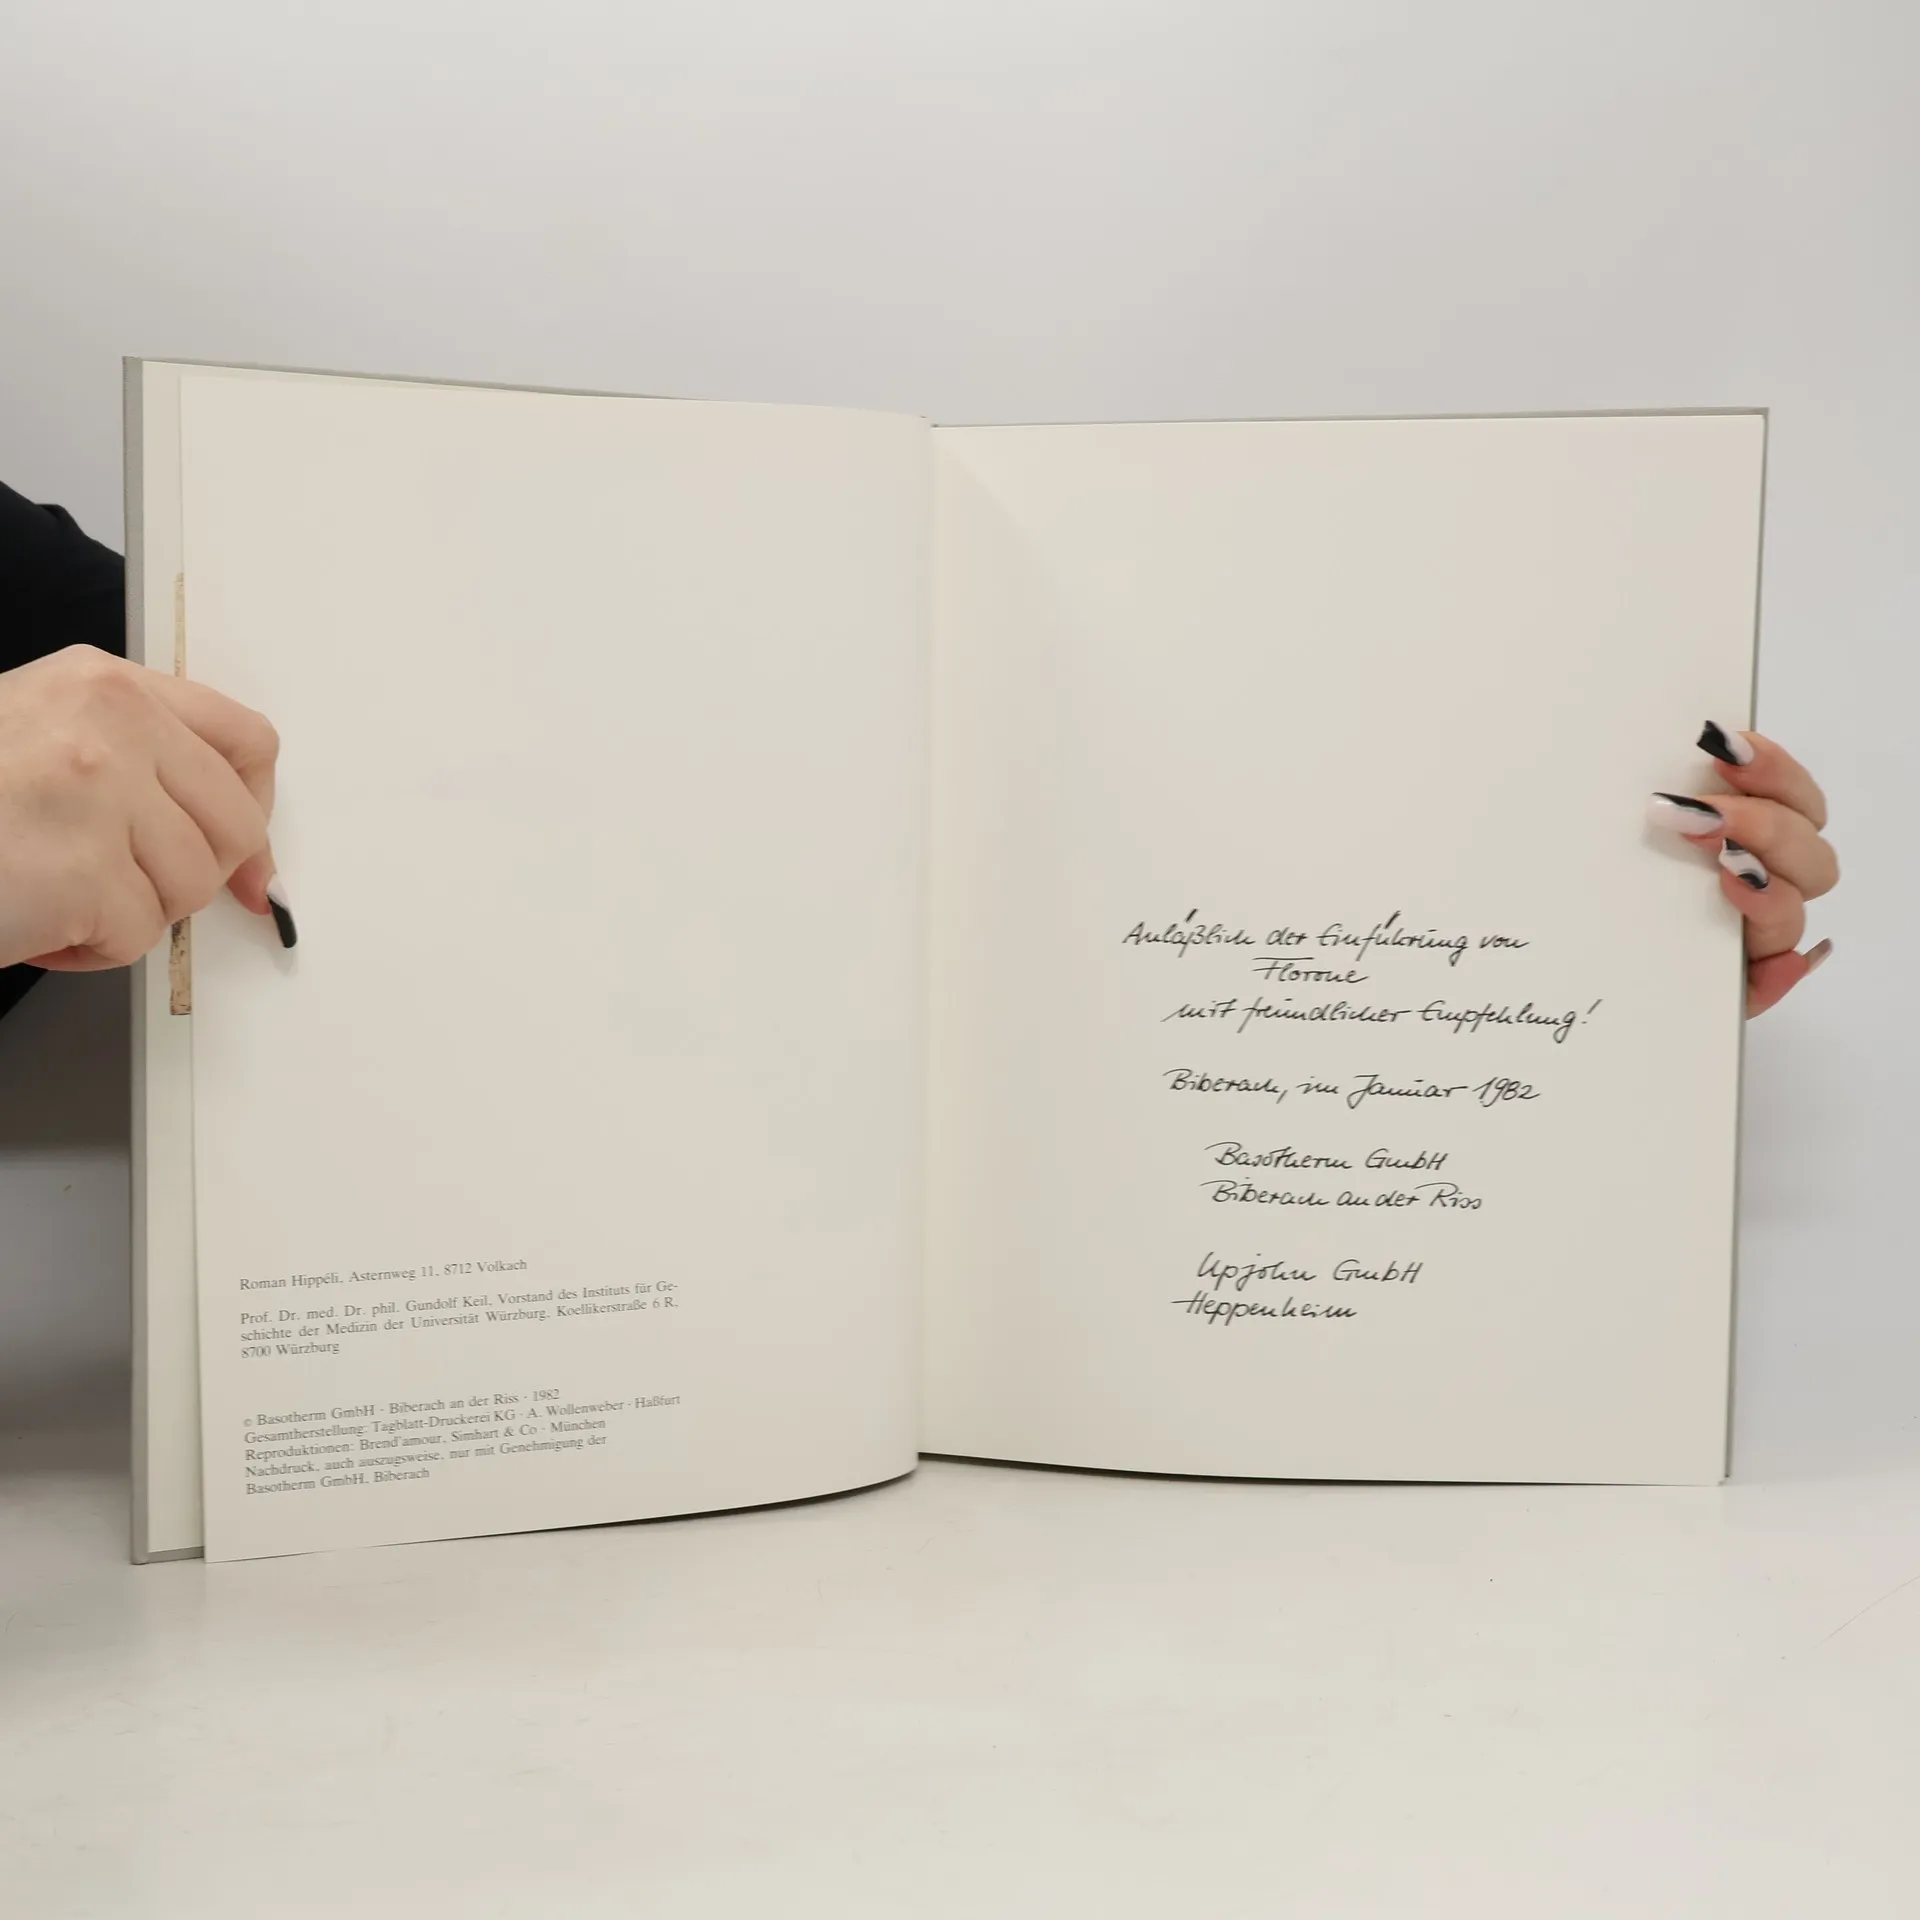 Roman Hippéli, Asternweg 11, 8712 Volkach
Prof. Dr. med. Dr. phil. Gundolf Keil, Vorstand des Instituts für Ge-
schichte der Medizin der Universität Würzburg, Koellikerstraße 6 R,
8700 Würzburg
© Basotherm GmbH · Biberach an der Riss · 1982
Gesamtherstellung: Tagblatt-Druckerei KG · A. Wollenweber · Haßfurt
Reproduktionen: Brend'amour, Simhart & Co · München
Nachdruck, auch auszugsweise, nur mit Genehmigung der
Basotherm GmbH, Biberach
Anläßlich der Einführung von
Florone
mit freundlicher Empfehlung!
Biberach, im Januar 1982
Basotherm GmbH
Biberach an der Riss
Upjohn GmbH
Heppenheim